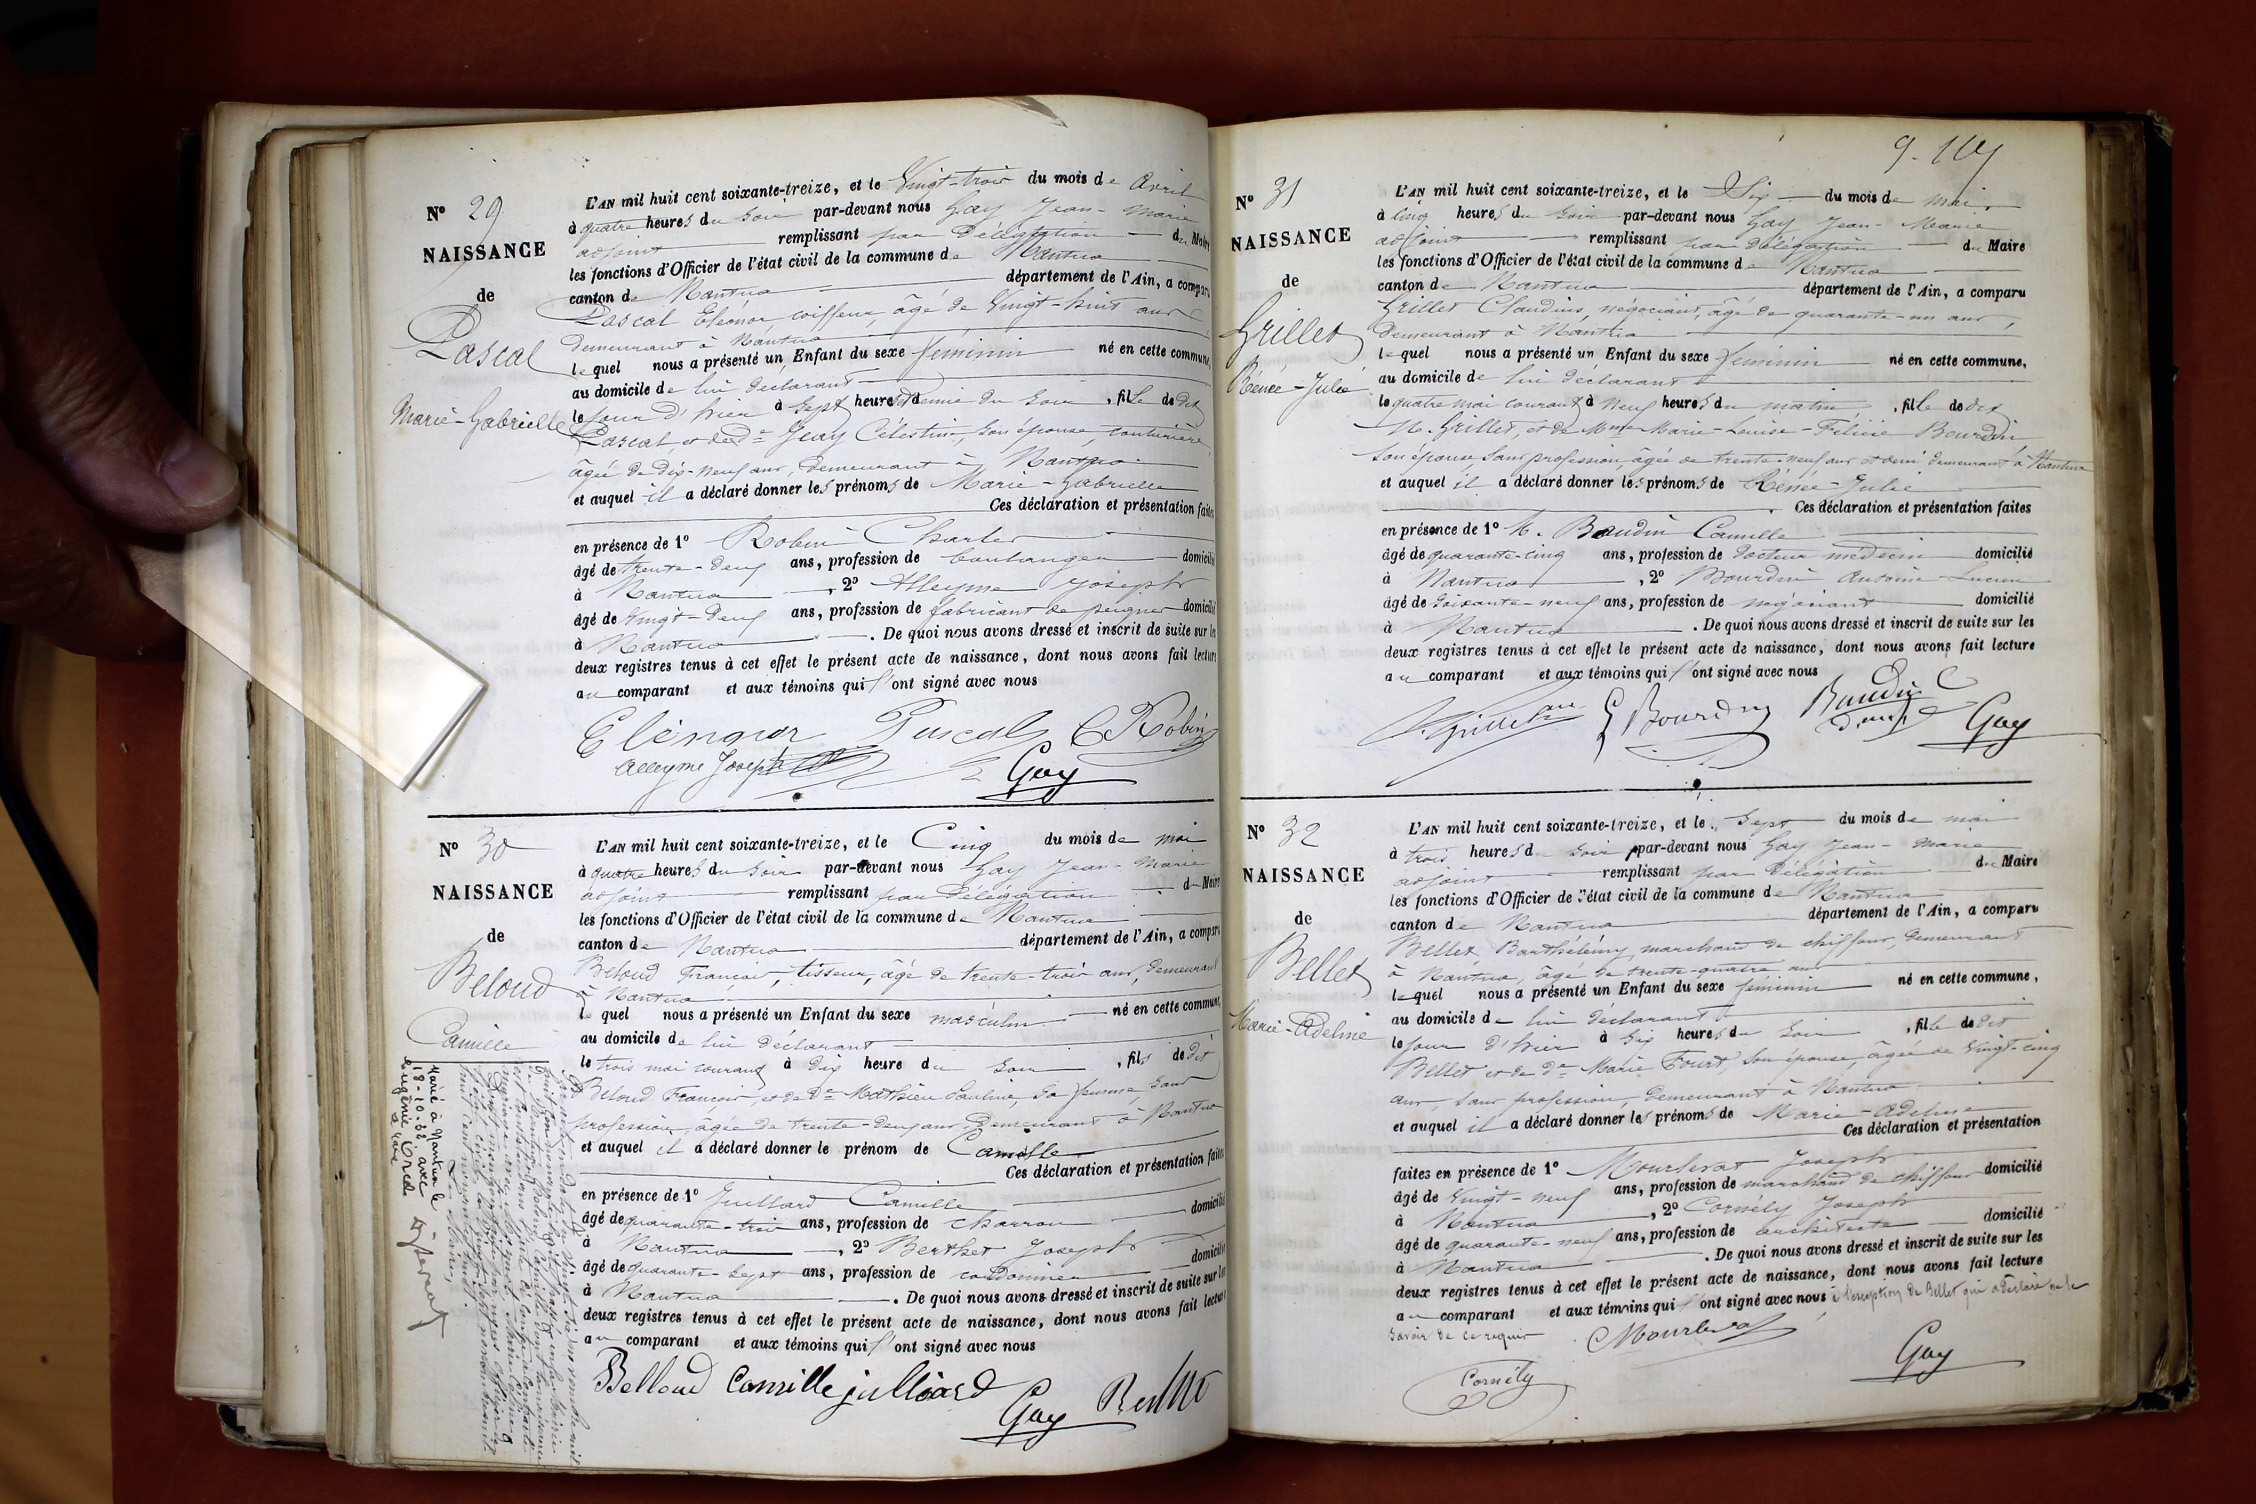 N° 29
NAISSANCE
de
Pascal
Marie-Gabrielle
L'AN mil huit cent soixante-treize, et le Vingt-trois du mois de Avril
à quatre heures du soir par-devant nous Gay Jean-Marie
adjoint remplissant par Délégation du Maire
les fonctions d'Officier de l'état civil de la commune de Nantua
canton de Nantua département de l'Ain, a comparu
Pascal Eleonor coiffeur, âgé de Vingt-huit ans
demeurant à Nantua
lequel nous a présenté un Enfant du sexe féminin né en cette commune,
au domicile de lui déclarant
le jour d'hier à sept heures et demie du soir, fille de dit
Pascal, et de De Jeay Célestine, son épouse, couturière
âgée de dix-neuf ans, demeurant à Nantua
et auquel il a déclaré donner les prénoms de Marie-Gabrielle
Ces déclaration et présentation faites
en présence de 1° Robin Charles
âgé de trente-deux ans, profession de boulanger domicilié
à Nantua, 2° Alleyme Joseph
âgé de vingt-deux ans, profession de fabricant de peignes domicilié
à Nantua. De quoi nous avons dressé et inscrit de suite sur les
deux registres tenus à cet effet le présent acte de naissance, dont nous avons fait lecture
au comparant et aux témoins qui l'ont signé avec nous
Eléonor Pascal C Robin
Alleyme Joseph Gay
N° 30
NAISSANCE
de
Beloud
Camille
Marié à Nantua le
18-10-32 avec
Eugénie
L'AN mil huit cent soixante-treize, et le Cinq du mois de mai
à quatre heures du soir par-devant nous Gay Jean-Marie
adjoint remplissant par Délégation du Maire
les fonctions d'Officier de l'état civil de la commune de Nantua
canton de Nantua département de l'Ain, a comparu
Beloud François, tisseur, âgé de trente-trois ans, demeurant
à Nantua
lequel nous a présenté un Enfant du sexe masculin né en cette commune,
au domicile de lui déclarant
le trois mai courant à dix heure du soir, fils de dit
Beloud François, et de De Mathieu Pauline, sa femme, sans
profession, âgée de trente-deux ans, demeurant à Nantua
et auquel il a déclaré donner le prénom de Camille
Ces déclaration et présentation faites
en présence de 1° Juillard Camille
âgé de quarante-trois ans, profession de charron domicilié
à Nantua, 2° Berthet Joseph
âgé de quarante-sept ans, profession de cordonnier domicilié
à Nantua. De quoi nous avons dressé et inscrit de suite sur les
deux registres tenus à cet effet le présent acte de naissance, dont nous avons fait lecture
au comparant et aux témoins qui l'ont signé avec nous
Belloud Camille julliard
Gay
9.
N° 31
NAISSANCE
de
Grillet
Rénée-Julie
L'AN mil huit cent soixante-treize, et le Six du mois de mai
à cinq heures du soir par-devant nous Gay Jean-Marie
adjoint remplissant par Délégation du Maire
les fonctions d'Officier de l'état civil de la commune de Nantua
canton de Nantua département de l'Ain, a comparu
Grillet Claudius, négociant, âgé de quarante-un ans,
demeurant à Nantua
lequel nous a présenté un Enfant du sexe féminin né en cette commune,
au domicile de lui déclarant
le quatre mai courant à neuf heures du matin, fille de dit
M. Grillet, et de Mme Marie-Louise-Félicie Bourdin
son épouse, sans profession, âgée de trente-neuf ans et demi demeurant à Nantua
et auquel il a déclaré donner les prénoms de Rénée-Julie
Ces déclaration et présentation faites
en présence de 1° M. Baudin Camille
âgé de quarante-cinq ans, profession de docteur médecin domicilié
à Nantua, 2° Bourdin Antoine-Lucien
âgé de soixante-neuf ans, profession de négociant domicilié
à Nantua. De quoi nous avons dressé et inscrit de suite sur les
deux registres tenus à cet effet le présent acte de naissance, dont nous avons fait lecture
au comparant et aux témoins qui l'ont signé avec nous
Grillet Bourdin Baudin C Gay
N° 32
NAISSANCE
de
Bellet
Marie-Adeline
L'AN mil huit cent soixante-treize, et le Sept du mois de mai
à trois heures du soir par-devant nous Gay Jean-Marie
adjoint remplissant par Délégation du Maire
les fonctions d'Officier de l'état civil de la commune de Nantua
canton de Nantua département de l'Ain, a comparu
Bellet, Barthélémy, marchand de chiffons, demeurant
à Nantua, âgé de trente-quatre ans
lequel nous a présenté un Enfant du sexe féminin né en cette commune,
au domicile de lui déclarant
le jour d'hier à six heures du soir, fille de dit
Bellet et de De Marie Fourt, son épouse, âgée de Vingt-cinq
ans, sans profession, demeurant à Nantua
et auquel il a déclaré donner les prénoms de Marie-Adeline
Ces déclaration et présentation
faites en présence de 1° Mourlevat Joseph
âgé de Vingt-neuf ans, profession de marchand de chiffons domicilié
à Nantua, 2° Cornély Joseph
âgé de quarante-neuf ans, profession de architecte domicilié
à Nantua. De quoi nous avons dressé et inscrit de suite sur les
deux registres tenus à cet effet le présent acte de naissance, dont nous avons fait lecture
au comparant et aux témoins qui l'ont signé avec nous à l'exception de Bellet qui a déclaré ne le
savoir de ce requis Mourlevat
Cornély Gay